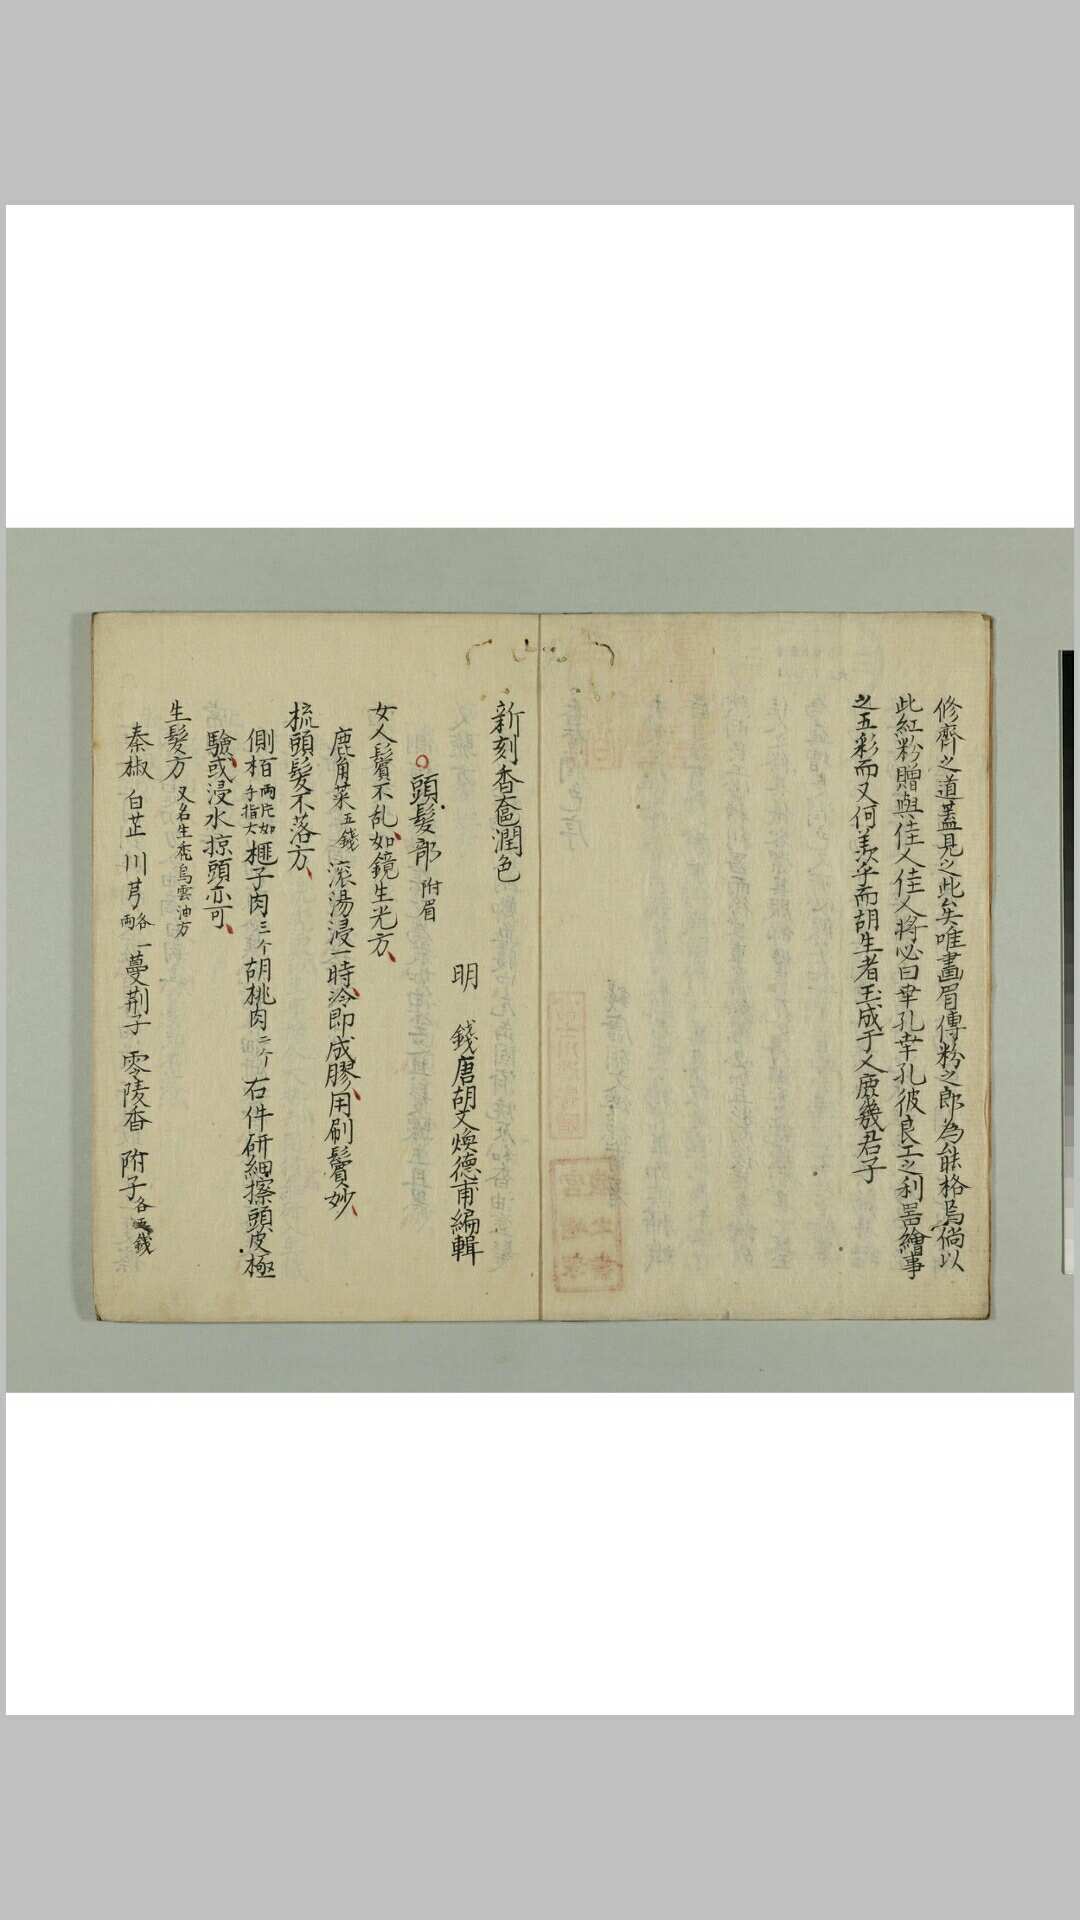 修齊之道蓋見之此矣唯畫眉傅粉之郎為能格焉倘以
此紅粉贈與佳人佳人將必曰幸孔幸孔彼良工之利器繪事
之五彩而又何羨乎而胡生者玉成于人庶幾君子
新刻香奩潤色
明 錢唐胡文煥德甫編輯
頭髮部 附眉
女人鬢不乱如鏡生光方
鹿角菜五錢 滾湯浸一時冷即成膠用刷鬢妙
梳頭髮不落方
側柏兩片如手指大 榧子肉三个 胡桃肉二个 右件研細擦頭皮極
驗或浸水掠頭亦可
生髮方 又名生禿烏雲油方
秦椒 白芷 川芎各一兩 蔓荆子 零陵香 附子各五錢